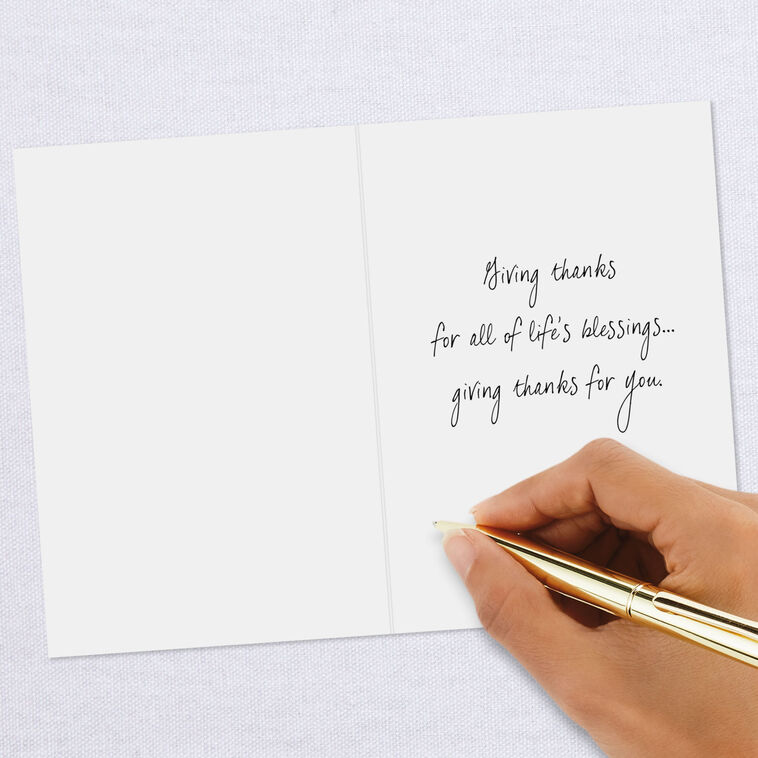 Giving thanks
for all of life's blessings...
giving thanks for you.